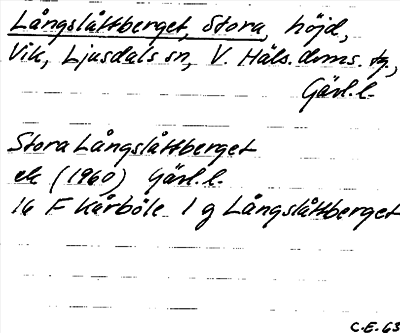 Långslåttberget, Stora, höjd,
Vik, Ljusdals sn, V. Häls. doms. tg,
Gävl. l.
Stora Långslåttberget
ek (1960) Gävl. l.
16 F Kårböle 1 g Långslåttberget
C.E. 63